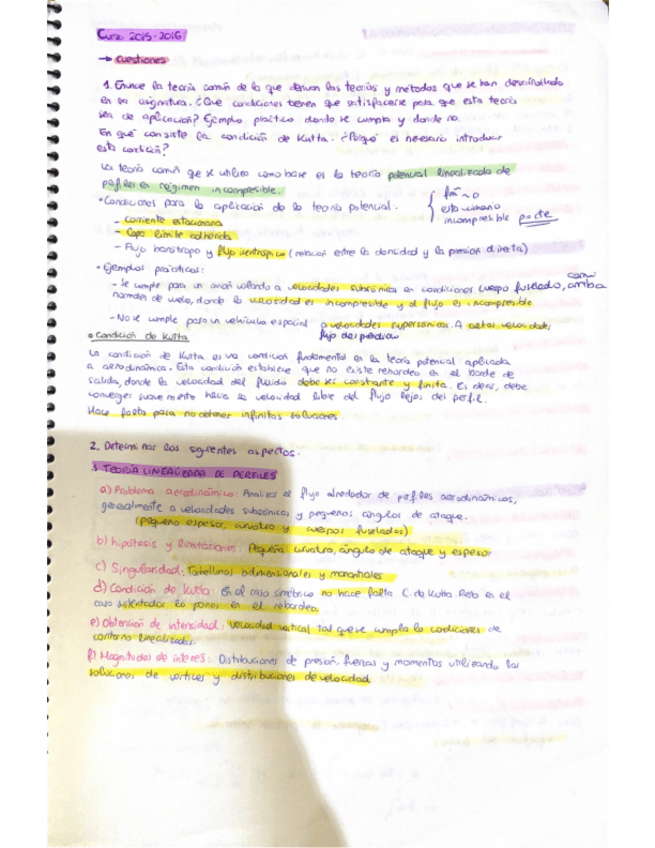 Curso 2015-2016
→ Cuestiones
1. Enuncie la teoría común de la que derivan las teorías y métodos que se han desarrollado
en la asignatura. ¿Que condiciones tienen que satisfacerse para que esta teoría
sea de aplicación? Ejemplo práctico donde se cumpla y donde no.
En qué consiste la condición de Kutta. ¿Porqué es necesario introducir
esta condición?
La teoría común que se utiliza como base es la teoría potencial linealizada de
perfiles en régimen incompresible.
• Condiciones para la aplicación de la teoría potencial.
fm ~ 0
estacionario
incompresible ρ = cte
- Corriente estacionaria
- Capa límite adherida
- Flujo barótropo y flujo isentrópico (relación entre la densidad y la presión directa)
• Ejemplos prácticos:
- Se cumple para un avión volando a velocidades subsónicas en condiciones cuerpo fuselado, con arriba
normales de vuelo, donde la velocidad es incompresible y el flujo es incompresible
- No se cumple para un vehículo espacial a velocidades supersónicas. A estas velocidades
flujo desprendido
• Condición de Kutta
La condición de Kutta es una condición fundamental en la teoría potencial aplicada
a aerodinámica. Esta condición establece que no existe rebordeo en el borde de
salida, donde la velocidad del fluido debe ser constante y finita. Es decir, debe
converger suavemente hacia la velocidad libre del flujo lejos del perfil.
Hace falta para no obtener infinitas soluciones.
2. Determinar los siguientes aspectos.
TEORÍA LINEALIZADA DE PERFILES
a) Problema aerodinámico: Analiza el flujo alrededor de perfiles aerodinámicos,
generalmente a velocidades subsónicas y pequeños ángulos de ataque.
(pequeño espesor, curvatura y cuerpos fuselados)
b) hipótesis y limitaciones: Pequeña curvatura, ángulo de ataque y espesor
c) Singularidad: Torbellinos bidimensionales y manantiales
d) Condición de Kutta: En el caso simétrico no hace falta C. de Kutta. Pero en el
caso sustentador la pones en el rebordeo.
e) Obtención de intensidad: Velocidad vertical tal que se cumpla la condiciones de
contorno linealizadas.
f) Magnitudes de interés: Distribuciones de presión, fuerzas y momentos utilizando las
soluciones de vórtices y distribuciones de velocidad